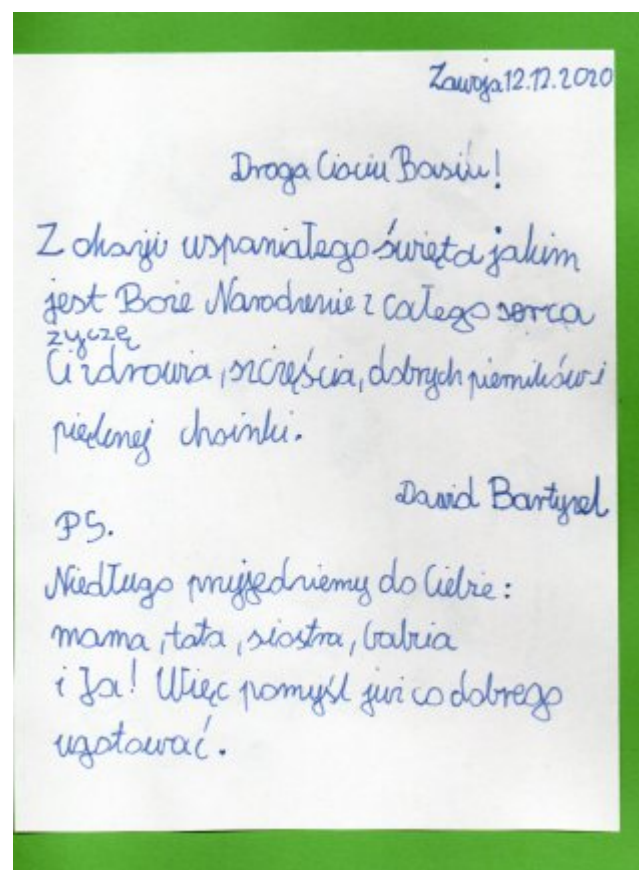 Zawoja 12.12.2020
Droga Ciociu Basiu!
Z okazji wspaniałego święta jakim
jest Boże Narodzenie z całego serca
życzę
Ci zdrowia, szczęścia, dobrych pierników i
pięknej choinki.
Dawid Bartyzel
PS.
Niedługo przyjedziemy do Ciebie:
mama, tata, siostra, babcia
i Ja! Więc pomyśl już co dobrego
ugotować.